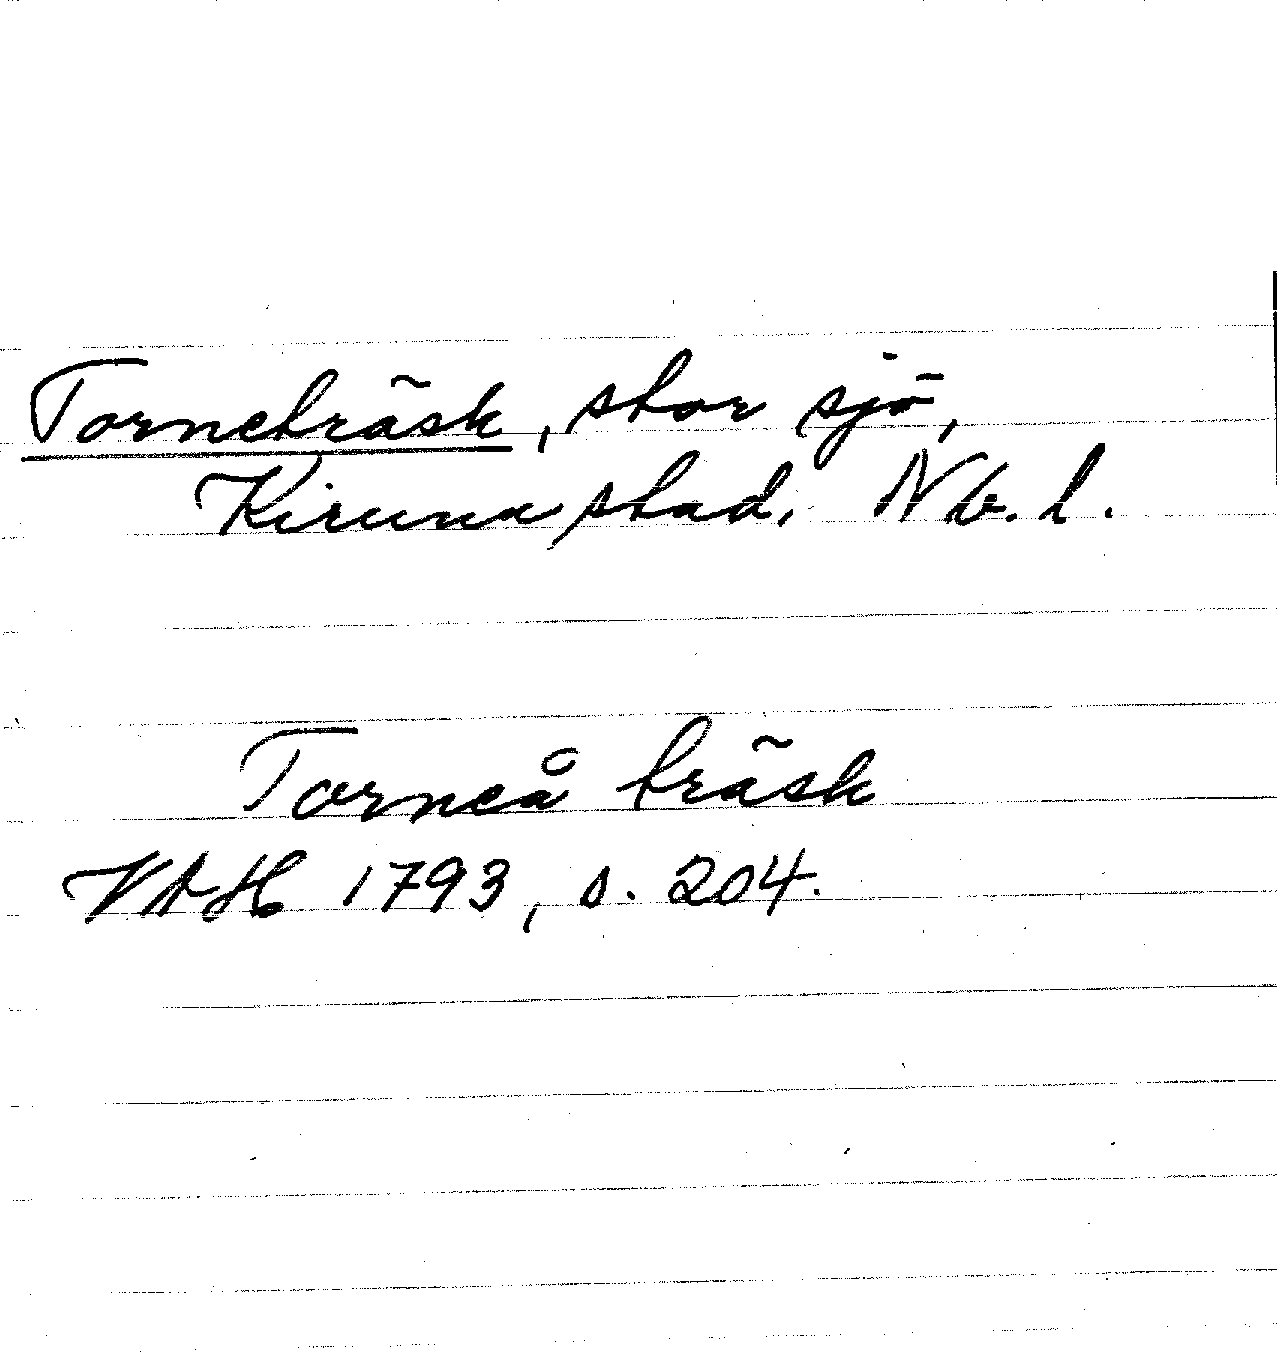 Torneträsk, stor sjö,
Kiruna stad, Nb. l.
Torneå träsk
VAH 1793, s. 204.